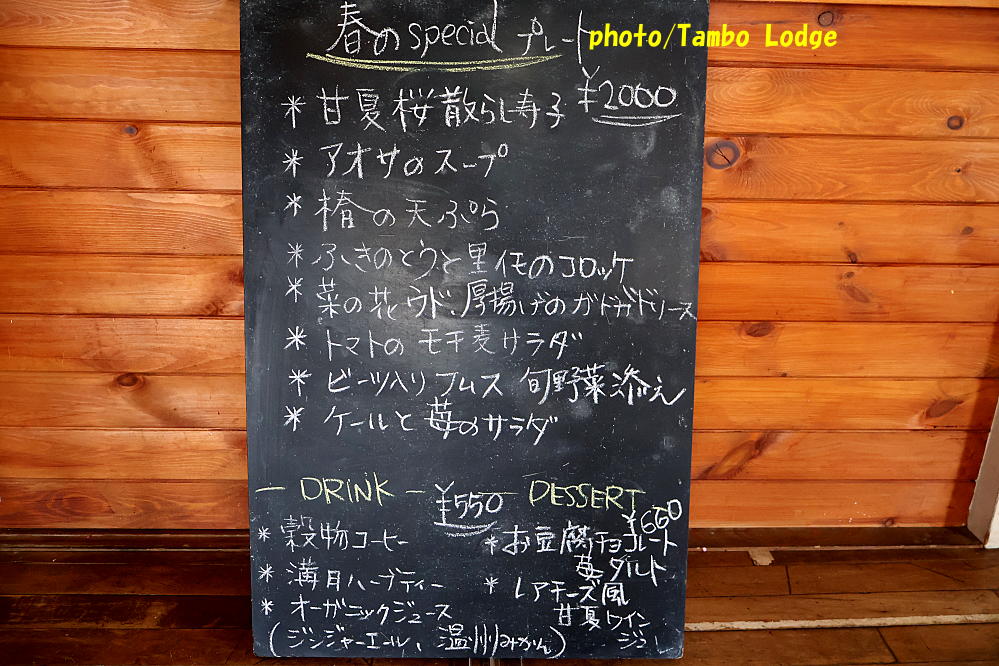 春のspecial プレート
photo/Tambo Lodge
¥2000
* 甘夏桜散らし寿子
* アオサのスープ
* 楕の天ぷら
* ふきのとうと里イモのコロッケ
* 菜の花ウド、厚揚げのガドガドソース
* トマトの モチ麦サラダ
* ビーツ入りフムス 旬野菜添え
* ケールと苺のサラダ
— DRINK — ¥550
* 穀物コーヒー
* 満月ハーブティー
* オーガニックジュース
(ジンジャーエール、温州みかん)
— DESSERT
¥660
* お豆腐チョコレート
苺タルト
* レアチーズ風
甘夏ワイン